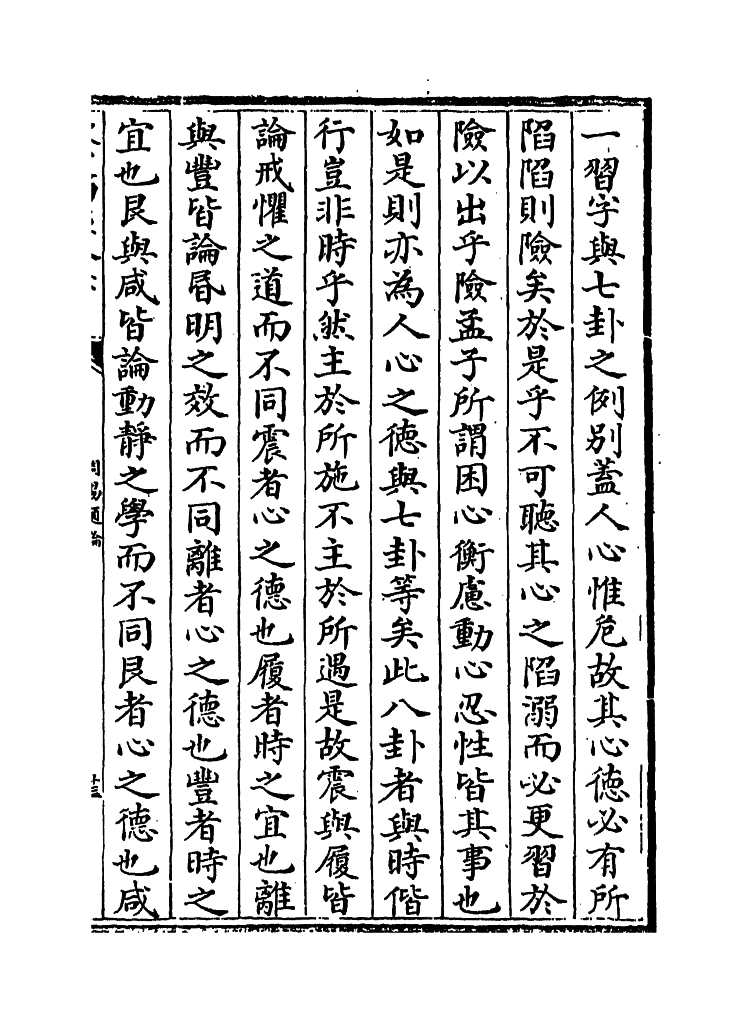 一習字與七卦之例别蓋人心惟危故其心徳必有所
陷陷則險矣於是乎不可聽其心之陷溺而必更習於
險以出乎險孟子所謂困心衡慮動心忍性皆其事也
如是則亦為人心之徳與七卦等矣此八卦者與時偕
行豈非時乎然主於所施不主於所遇是故震與履皆
論戒懼之道而不同震者心之徳也履者時之宜也離
與豐皆論昬明之效而不同離者心之徳也豐者時之
宜也艮與咸皆論動靜之學而不同艮者心之徳也咸
周易通論